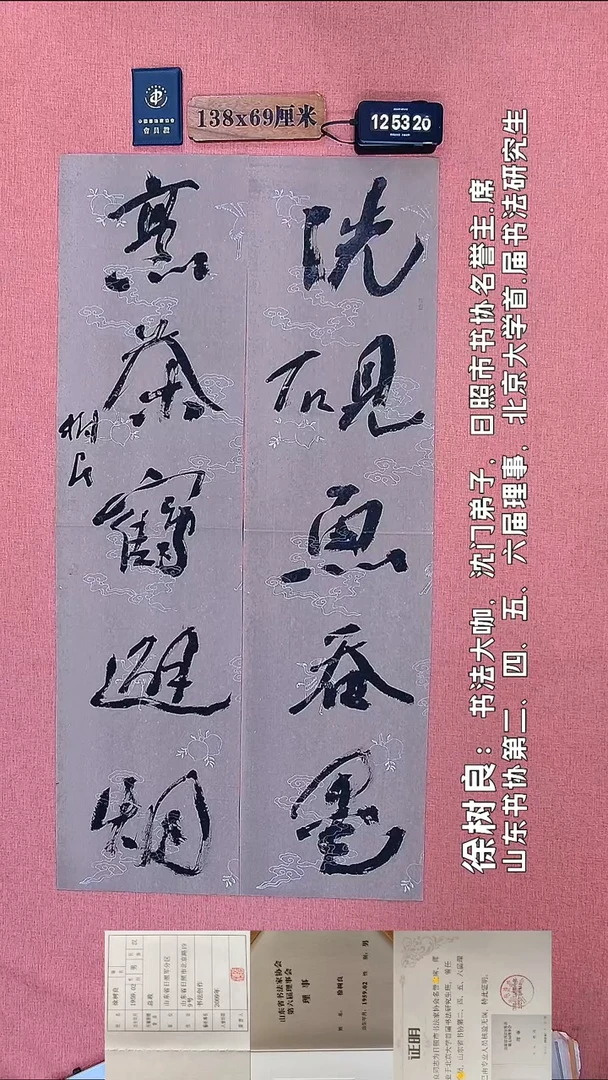 洗砚鱼吞墨
烹茶鹤避烟
树良
138x69厘米
12 53 20
会员证
徐树良：书法大咖，沈门弟子，日照市书协名誉主.席
山东书协第二、四、五、六届理事，北京大学首.届书法研究生
徐树良
1959.02
男
汉
书法创作
2009年
山东省书法家协会
第六届理事会
理事
徐树良
男
1959.02
证明